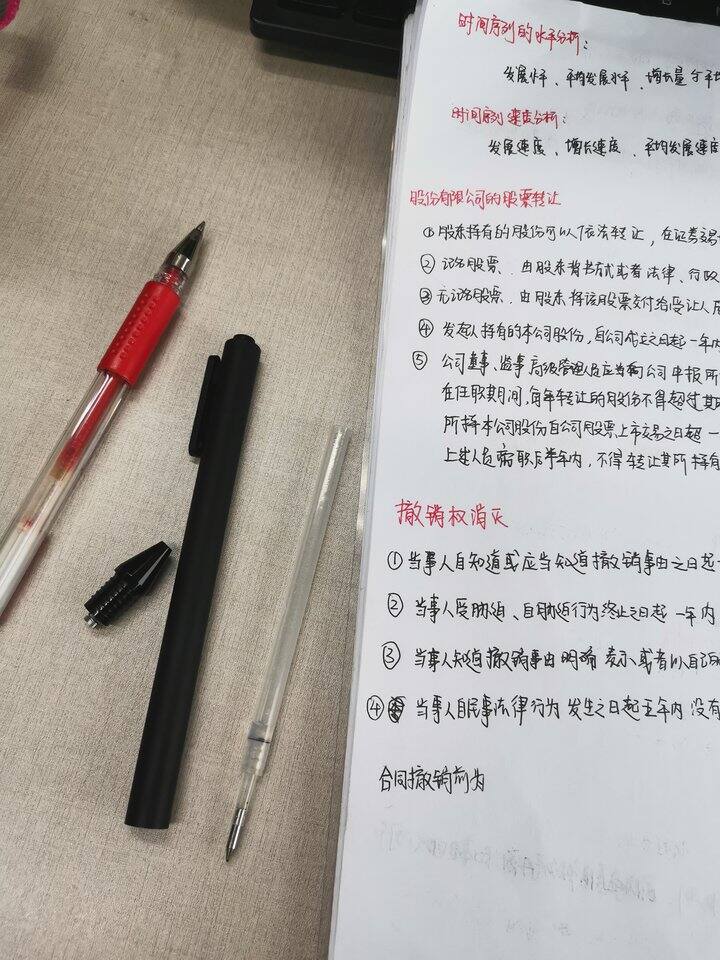 时间序列的水平分析：
发展水平、平均发展水平、增长量与平均
时间序列速度分析：
发展速度、增长速度、平均发展速度
股份有限公司的股票转让
①股东持有的股份可以依法转让，在证券交易
②记名股票、由股东背书方式或者法律、行政
③无记名股票，由股东将该股票交付给受让人后
④发起人持有的本公司股份，自公司成立之日起一年内
⑤公司董事、监事、高级管理人员应当向公司申报所
在任职期间，每年转让的股份不得超过其
所持本公司股份自公司股票上市交易之日起一
上述人员离职后半年内，不得转让其所持有
撤销权消灭
①当事人自知道或应当知道撤销事由之日起一
②当事人受胁迫、自胁迫行为终止之日起一年内
③当事人知道撤销事由明确表示或者以自己的
④当事人自民事法律行为发生之日起五年内没有
合同撤销前为